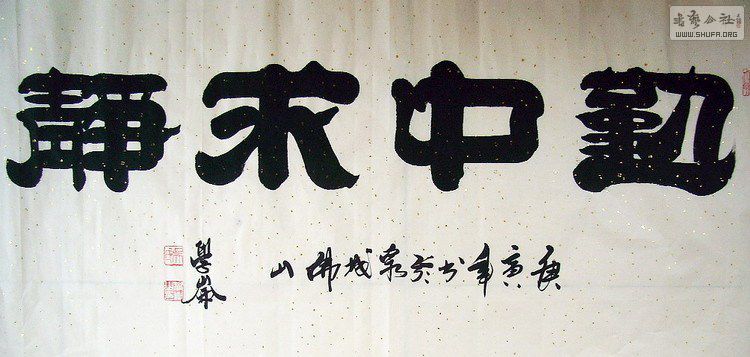 動中求靜
庚寅年书於泉城佛山
學峯
书艺公社
WWW.SHUFA.ORG